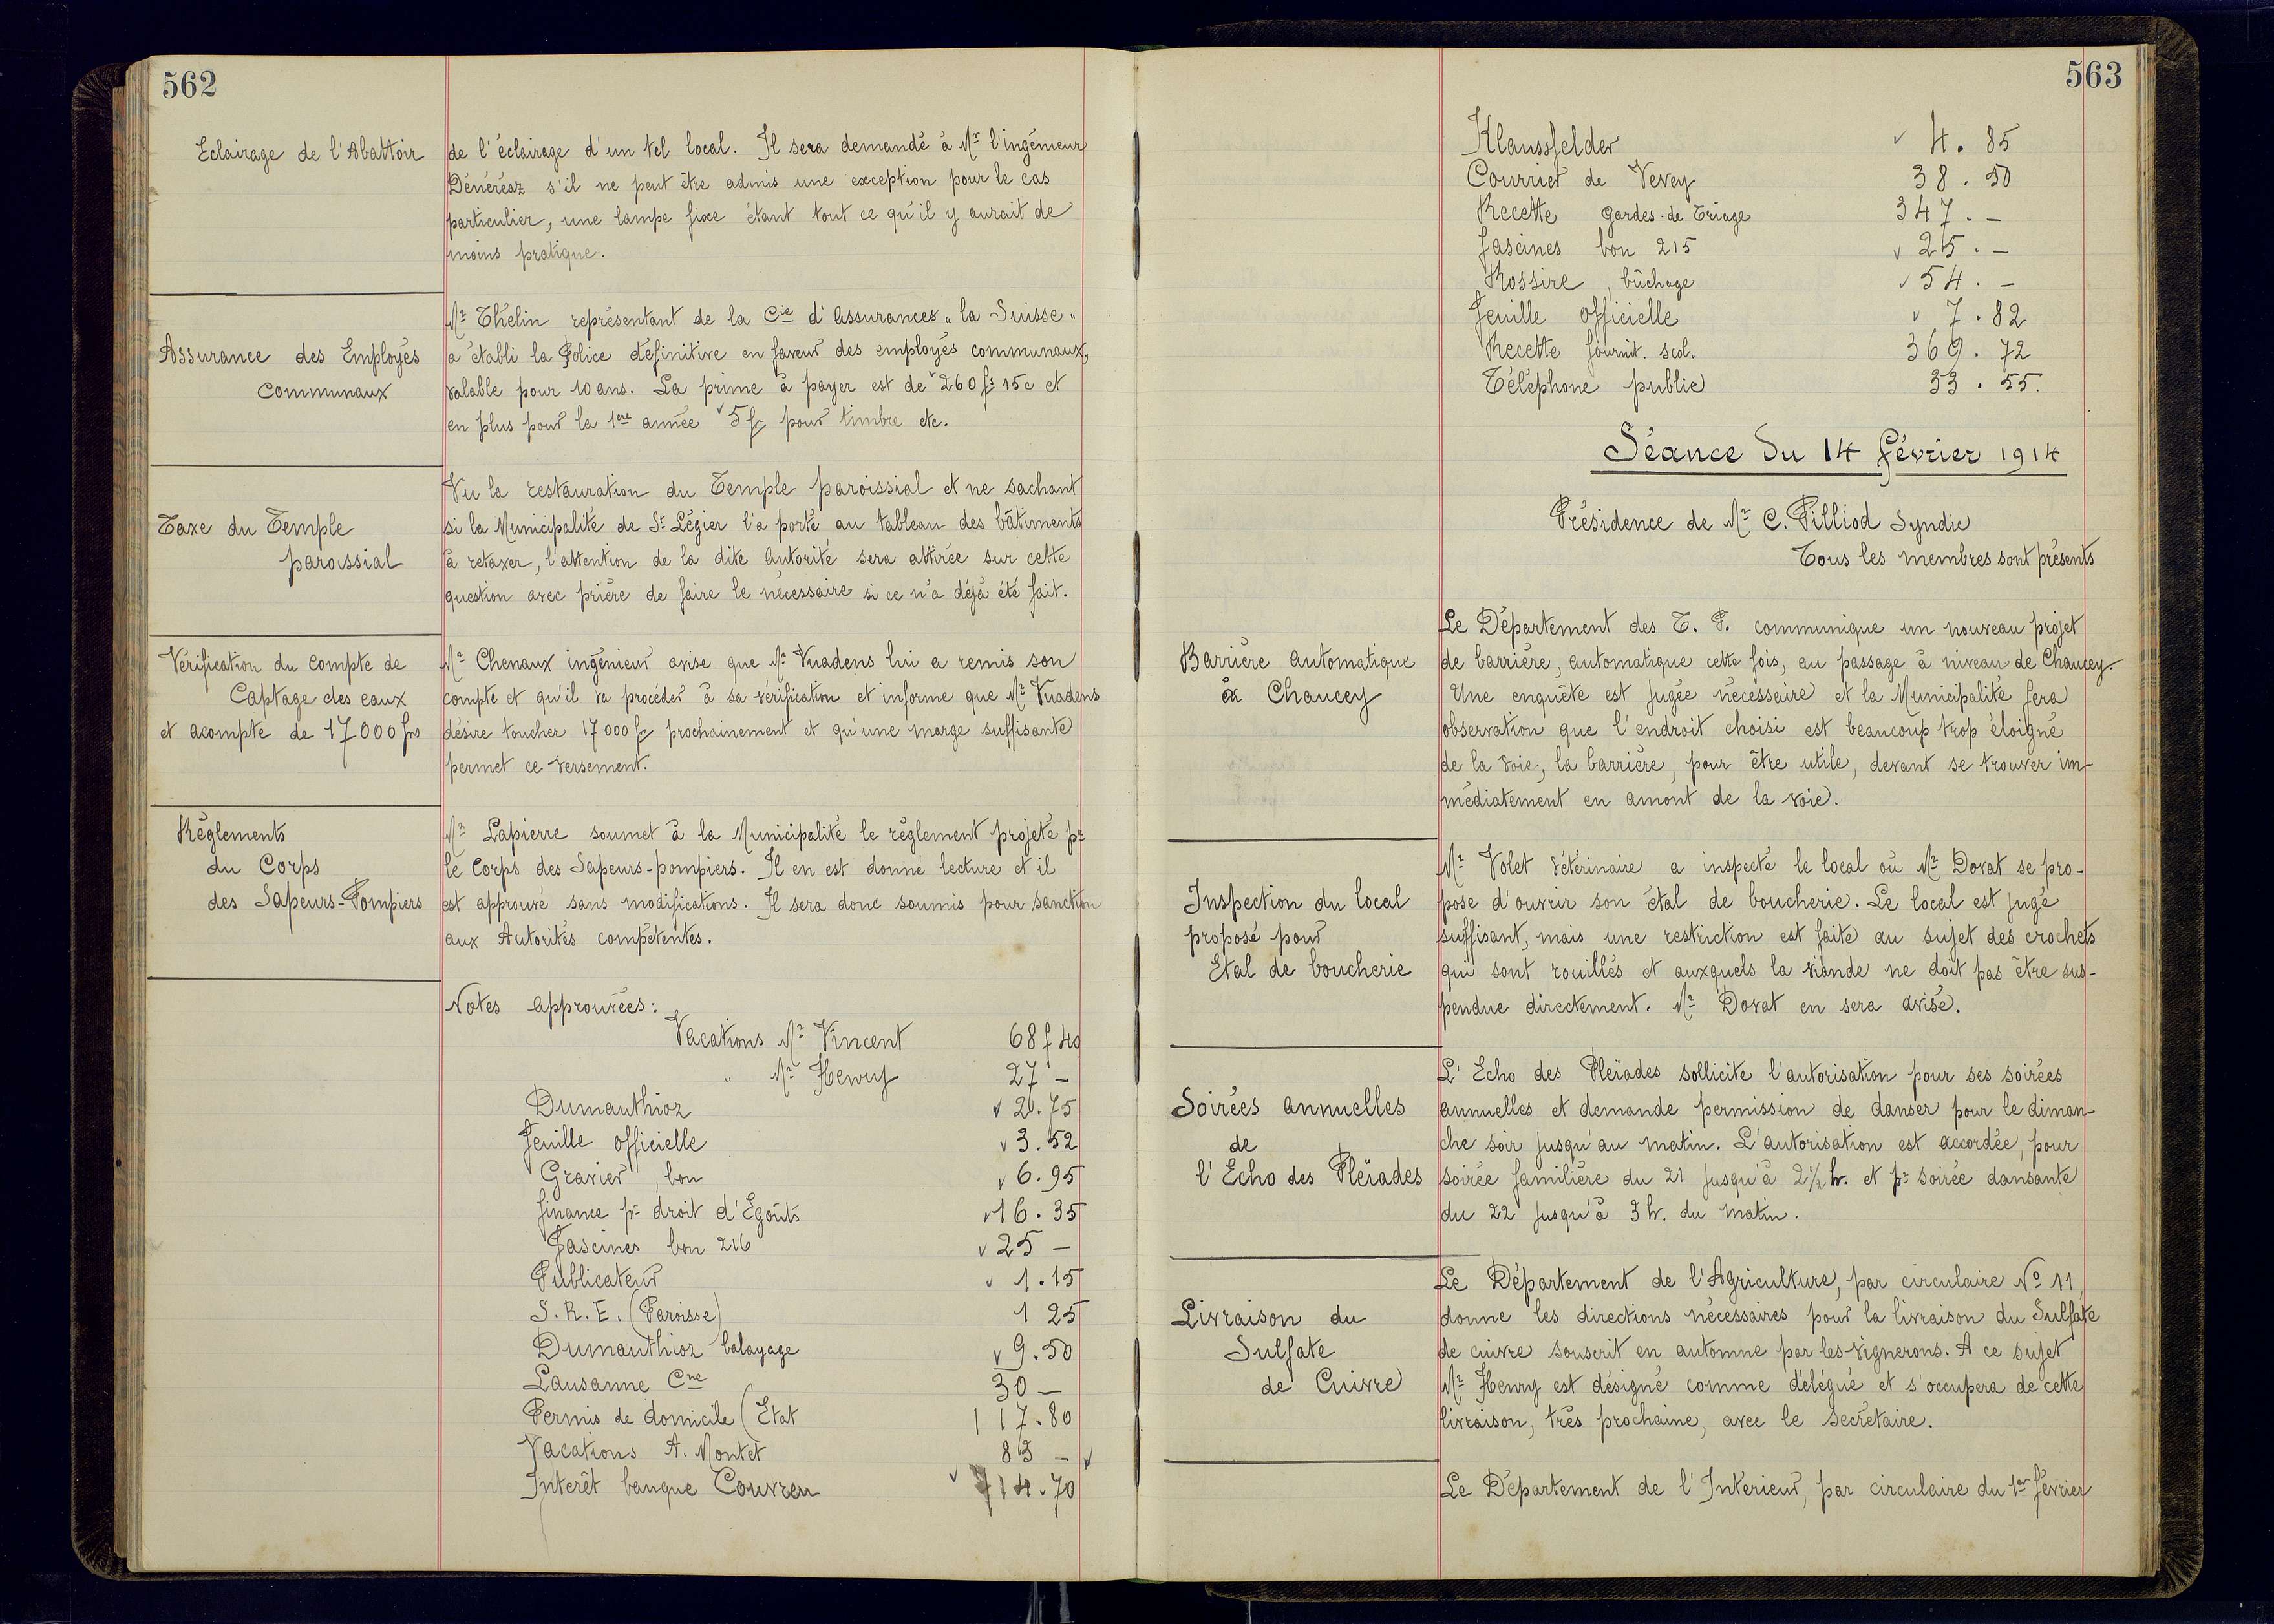 562
Eclairage de l'Abattoir
de l'éclairage d'un tel local. Il sera demandé à Mr l'ingénieur
Dénéréaz s'il ne peut être admis une exception pour le cas
particulier, une lampe fixe étant tout ce qu'il y aurait de
moins pratique.
Assurance des Employés
communaux
Mr Thélin représentant de la Cie d'Assurances "la Suisse"
a établi la Police définitive en faveur des employés communaux,
valable pour 10 ans. La prime à payer est de 260 f. 15 c et
en plus pour la 1ère année 5 fr pour timbre etc.
Taxe du Temple
paroissial
Vu la restauration du Temple paroissial et ne sachant
si la Municipalité de St Légier l'a porté au tableau des bâtiments
à retaxer, l'attention de la dite Autorité sera attirée sur cette
question avec prière de faire le nécessaire si ce n'a déjà été fait.
Vérification du compte de
Captage des eaux
et acompte de 17000 frs
Mr Chenaux ingénieur avise que Mr Vuadens lui a remis son
compte et qu'il va procéder à sa vérification et informe que Mr Vuadens
désire toucher 17000 fr prochainement et qu'une marge suffisante
permet ce versement.
Règlements
du Corps
des Sapeurs-Pompiers
Mr Lapierre soumet à la Municipalité le règlement projeté pr
le Corps des Sapeurs-pompiers. Il en est donné lecture et il
est approuvé sans modifications. Il sera donc soumis pour sanction
aux Autorités compétentes.
Notes approuvées:
Vacations Mr Vincent 68 f 40
" Mr Henry 27 –
Dumauthioz √ 21.75
Feuille officielle √ 3.52
Gravier, bon √ 6.95
finance pr droit d'Egoûts √ 16.35
Fascines bon 216 √ 25 –
Publicateur √ 1.15
S.R.E. (Paroisse) 1 25
Dumauthioz balayage √ 9.50
Lausanne Cne 30 –
Permis de domicile (Etat 117.80
Vacations A. Montet 83 – √
Interêt banque Couvreu √ 714.70
563
Klaussfelder √ 4.85
Courrier de Vevey 38.50
Recette gardes-de Triage 347.–
fascines bon 215 √ 25.–
Rossire, bûchage √ 54.–
Feuille officielle √ 7.82
Recette fournit. scol. 369.72
Téléphone public 33.55.
Séance du 14 février 1914
Présidence de Mr C. Pilliod Syndic
Tous les membres sont présents
Barrière automatique
à Chaucey
Le Département des T. P. communique un nouveau projet
de barrière, automatique cette fois, au passage à niveau de Chaucey.
Une enquête est jugée nécessaire et la Municipalité fera
observation que l'endroit choisi est beaucoup trop éloigné
de la voie, la barrière, pour être utile, devant se trouver im-
médiatement en amont de la voie.
Inspection du local
proposé pour
Etal de boucherie
Mr Volet Vétérinaire a inspecté le local où Mr Dovat se pro-
pose d'ouvrir son étal de boucherie. Le local est jugé
suffisant, mais une restriction est faite au sujet des crochets
qui sont rouillés et auxquels la viande ne doit pas être sus-
pendue directement. Mr Dovat en sera avisé.
Soirées annuelles
de
l'Echo des Pléiades
L'Echo des Pléiades sollicite l'autorisation pour ses soirées
annuelles et demande permission de danser pour le diman-
che soir jusqu'au matin. L'autorisation est accordée, pour
soirée familière du 21 jusqu'à 2 1/2 h. et pr soirée dansante
du 22 jusqu'à 3 h. du matin.
Livraison du
Sulfate
de Cuivre
Le Département de l'Agriculture, par circulaire No 11
donne les directions nécessaires pour la livraison du Sulfate
de cuivre souscrit en automne par les vignerons. A ce sujet
Mr Henry est désigné comme délégué et s'occupera de cette
livraison, très prochaine, avec le secrétaire.
Le Département de l'Intérieur, par circulaire du 1er février